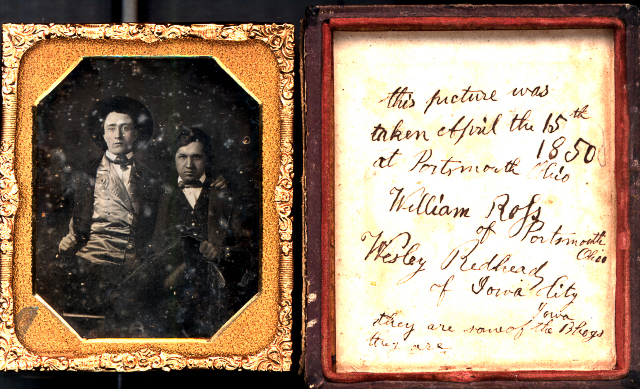 this picture was
taken April the 15th
1850
at Portsmouth Ohio
William Ross
of Portsmouth
Ohio
Wesley Redhead
of Iowa City
Iowa
they are some of the Bhoys
they are